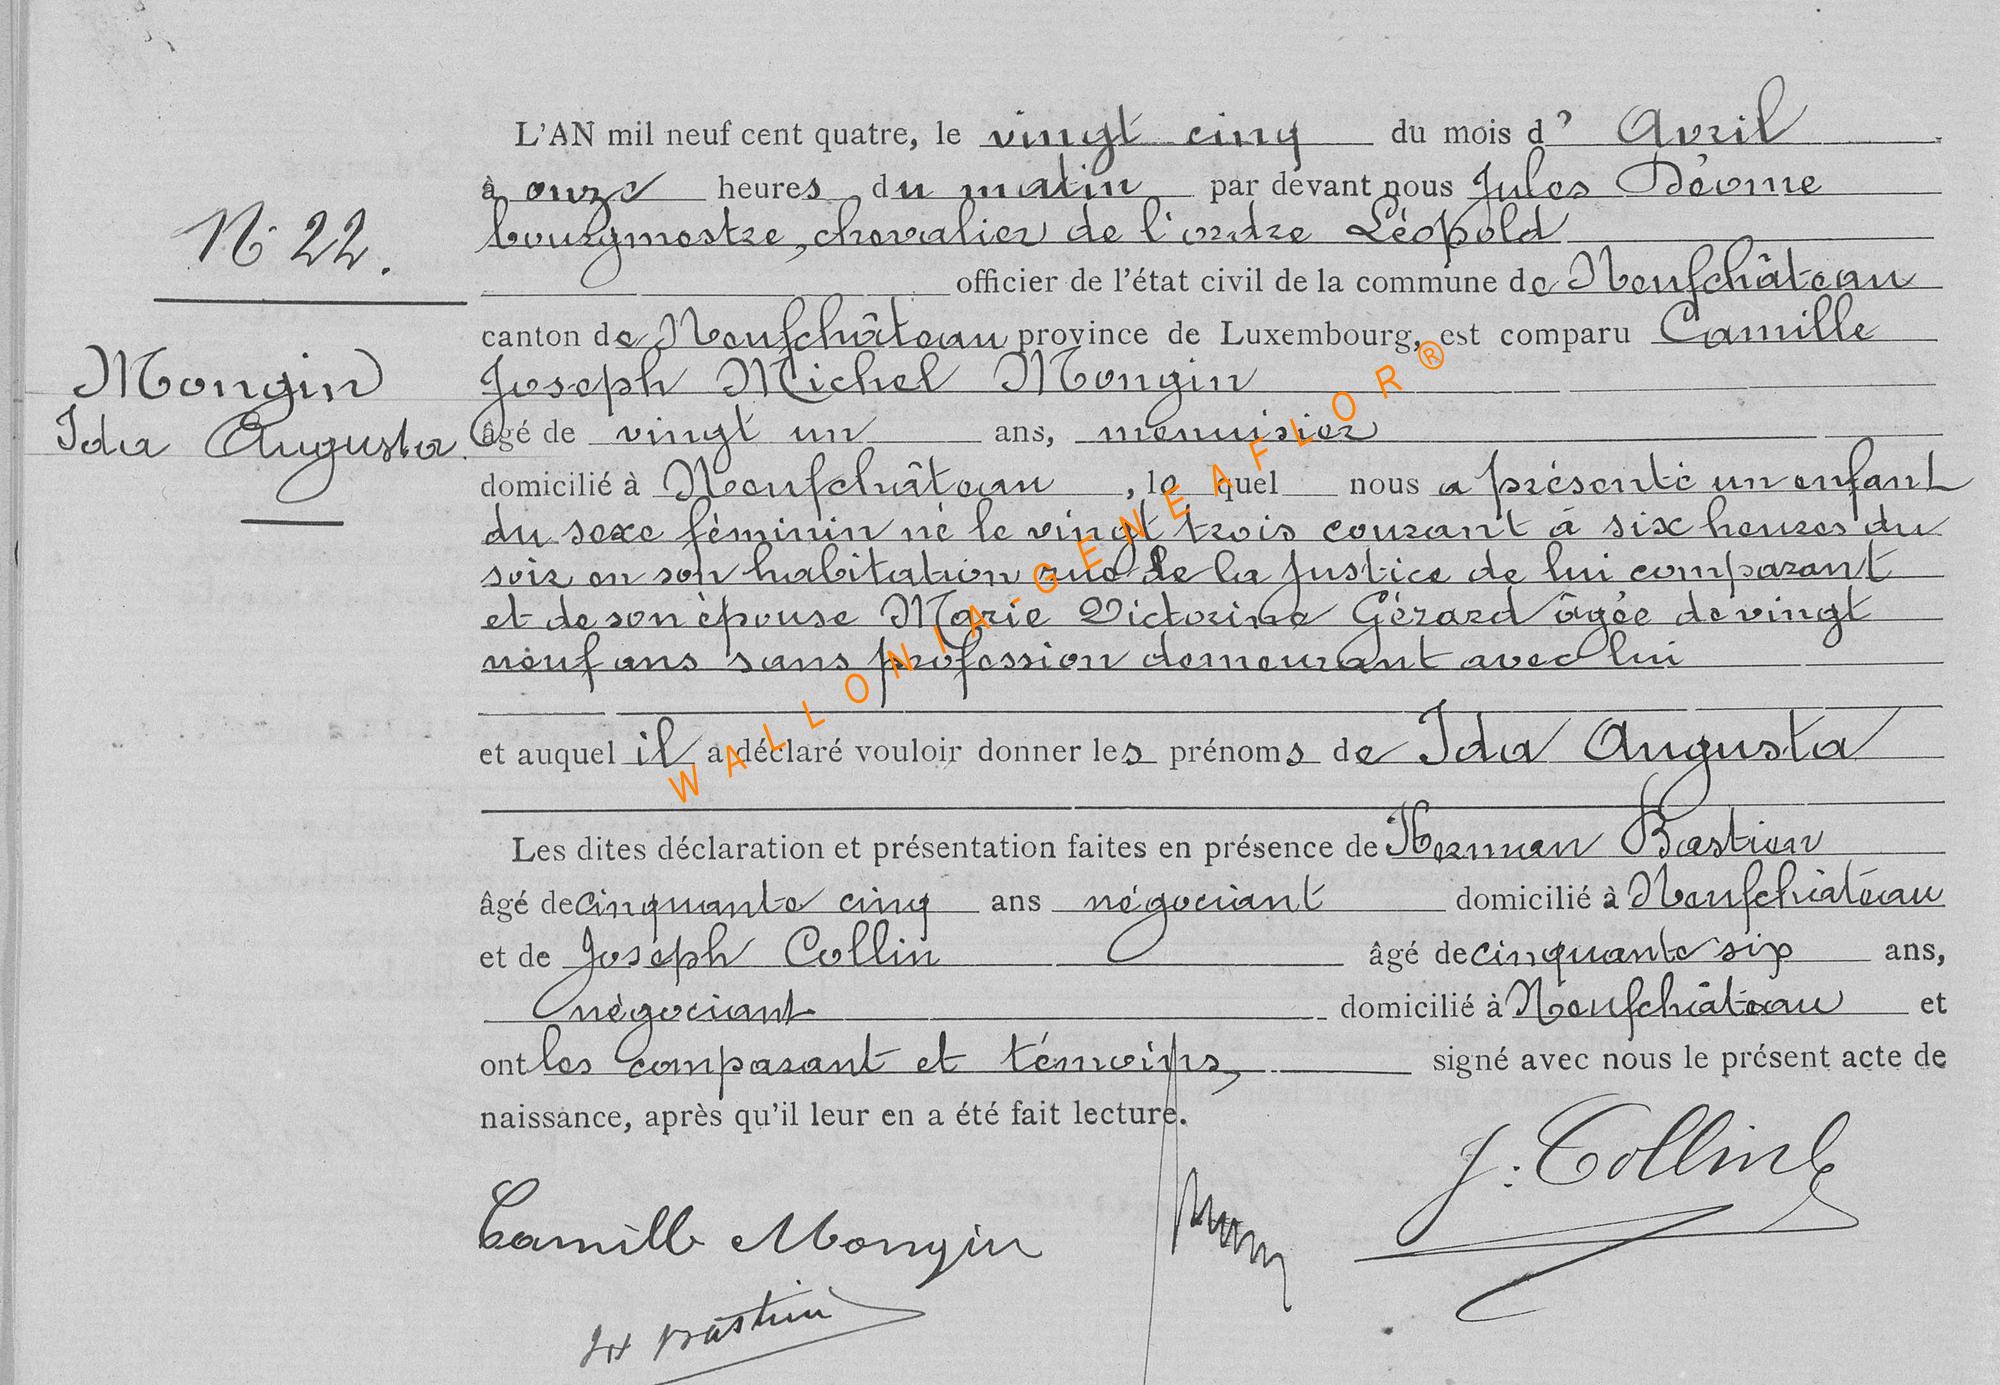 L'AN mil neuf cent quatre, le vingt cinq du mois d' Avril
à onze heures du matin par devant nous Jules Déome
N° 22.
bourgmestre, chevalier de l'ordre Léopold
officier de l'état civil de la commune de Neufchâteau
canton de Neufchâteau province de Luxembourg, est comparu Camille
Mongin
Joseph Michel Mongin
Ida Augusta.
âgé de vingt un ans, menuisier
domicilié à Neufchâteau, le quel nous a présenté un enfant
du sexe féminin né le vingt trois courant à six heures du
soir en son habitation rue de la Justice de lui comparant
et de son épouse Marie Victorine Gérard âgée de vingt
neuf ans sans profession demeurant avec lui
et auquel il a déclaré vouloir donner les prénoms de Ida Augusta
Les dites déclaration et présentation faites en présence de Herman Bastien
âgé de cinquante cinq ans négociant domicilié à Neufchâteau
et de Joseph Collin âgé de cinquante six ans,
négociant domicilié à Neufchâteau et
ont les comparant et témoins, signé avec nous le présent acte de
naissance, après qu'il leur en a été fait lecture.
J. Collin
Camille Mongin
Bastien
WALLONIA-GENEAFLOR®